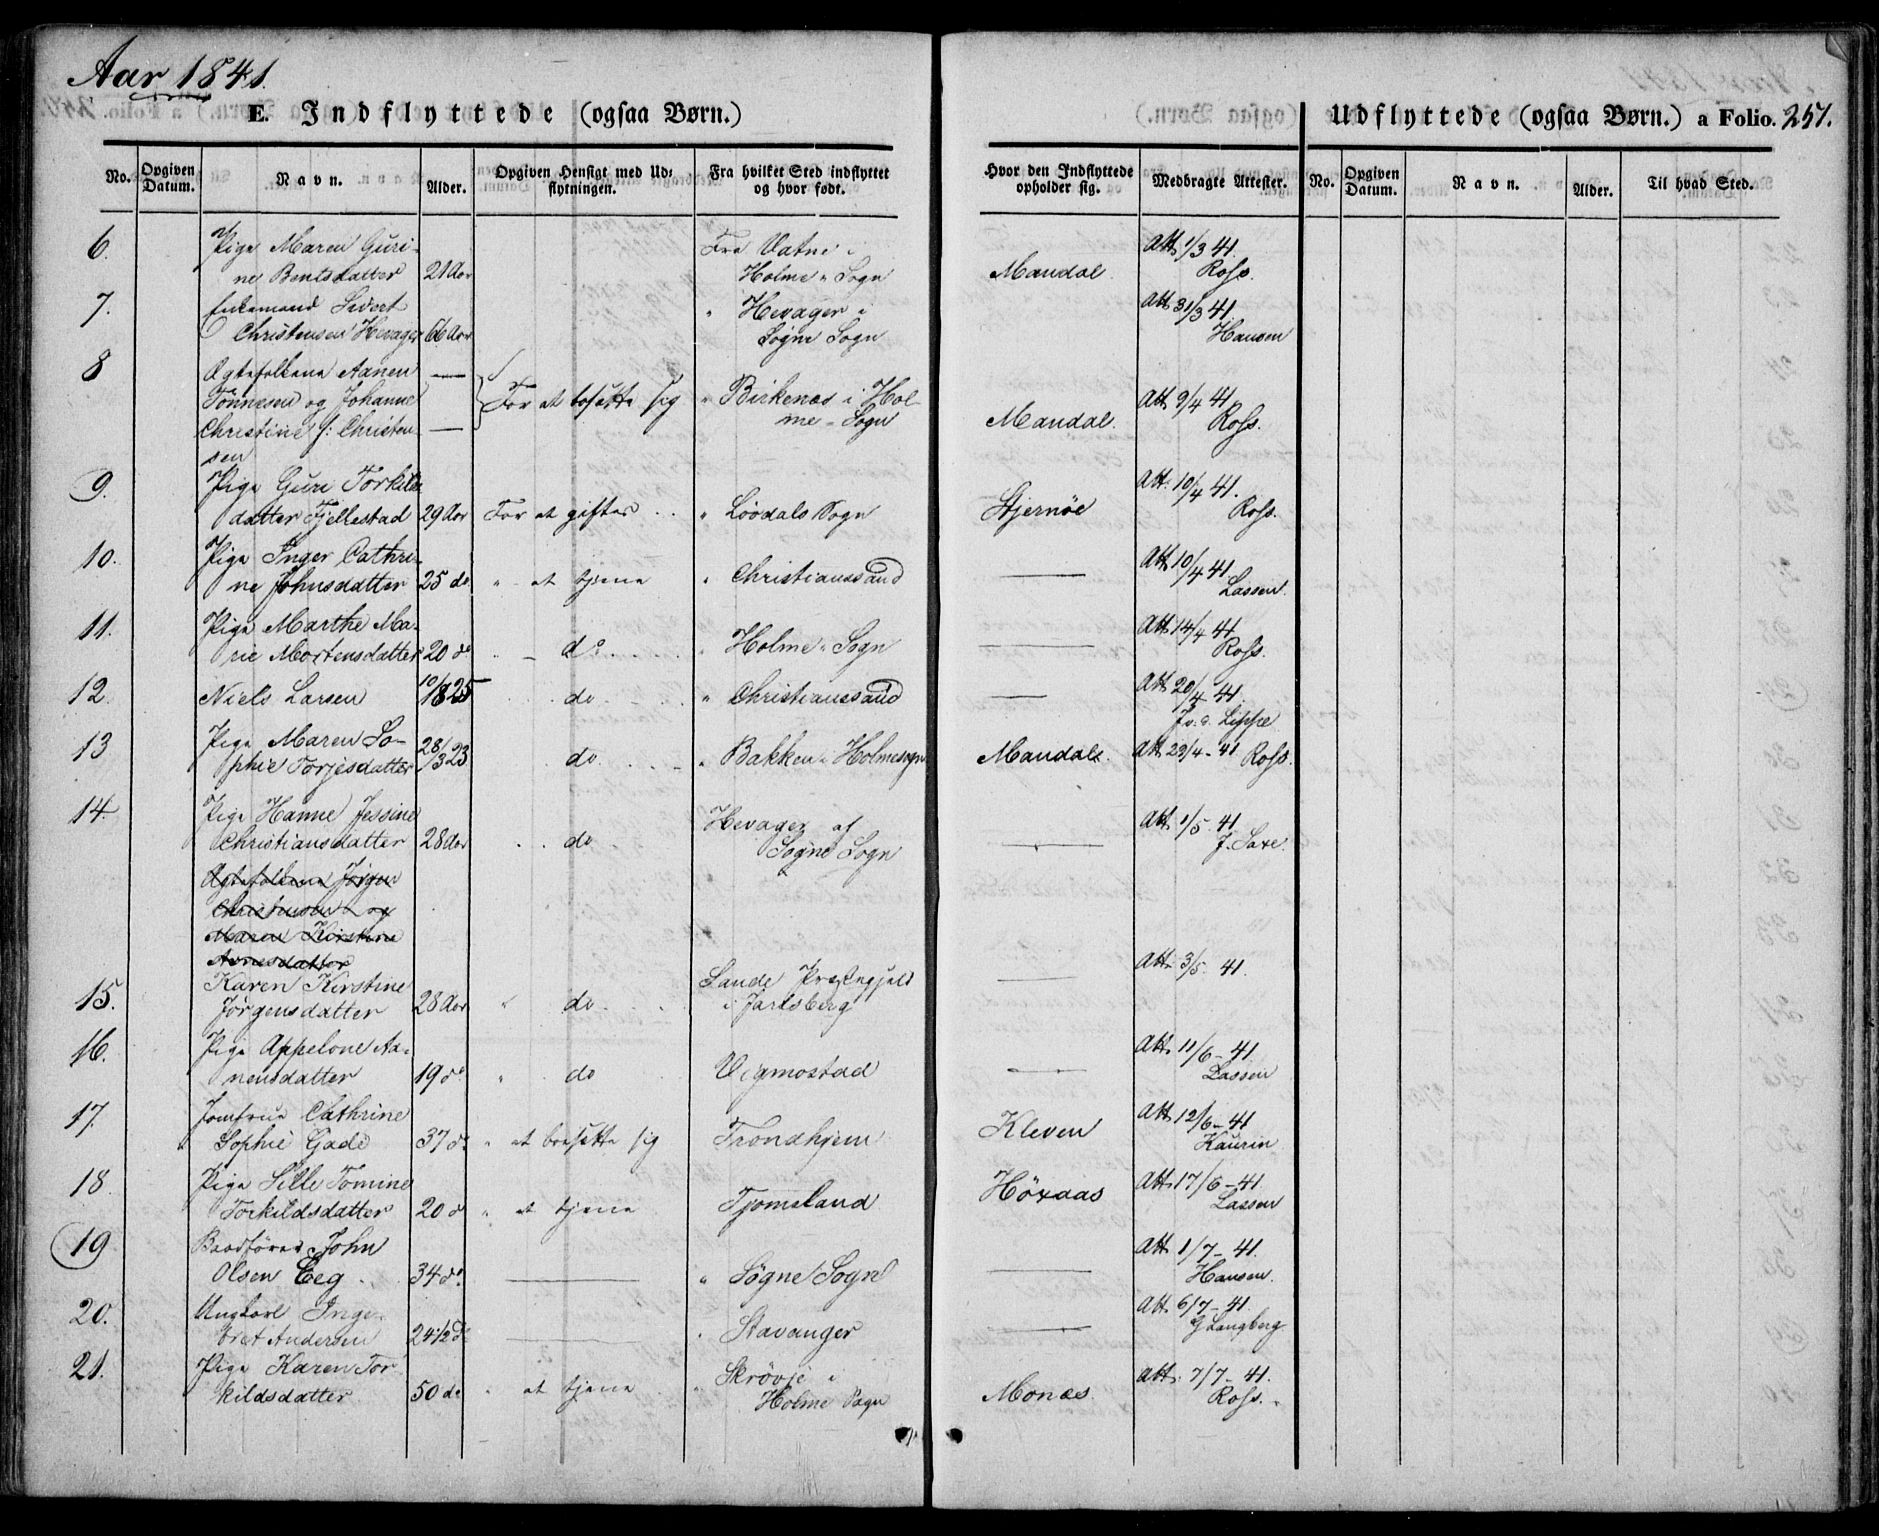 Aar 1841.
E. Indflyttede (ogsaa Børn.)
Udflyttede (ogsaa Børn.) a Folio. 251.
No. Opgiven Datum. Navn. Alder. Opgiven Hensigt med Udflytningen. Fra hvilket Sted indflyttet og hvor født. Hvor den Indflyttede opholder sig. Medbragte Attester. No. Opgiven Datum. Navn. Alder. Til hvad Sted.
6. Pige Maren Guri- Fra Vatne i Att. 1/3 41.
ne Bentsdatter 21 Aar Holme " Sogn Mandal. Ross.
7. Enkemand Sivert " Hevager i Att. 31/3 41.
Christensen Hevager 66 Aar Søgne Sogn Hansen
8 Ægtefolkene Aanen —
Tönnesen og Johanne For at bosætte sig " Birkenæs i Hol- Att. 9/4 41.
Christine f: Christen- — me - Sogn Mandal. Ross.
sen
9. Pige Guri Torkils- Att. 10/4 41.
datter Fjellestad 29 Aar For at giftes " Løodals Sogn Stjernöe Ross.
10. Pige Inger Cathri- Att. 10/4 41.
ne Johnsdatter 25 do " at tjene " Christianssand — Lassen.
11. Pige Marthe Ma- Att. 14/4 41
rie Mortensdatter 20 do " do " Holme " Sogn — Ross.
12. Niels Larsen 10/1825 do " Christianssand — Att. 20/4 - 41
Lippe
13 Pige Maren So- 28/3 23 Att. 29/4 - 41 Ross.
phie Torjesdatter do. " Bakken i Holmesogn Mandal.
14. Pige Hanne Jessine Hevager af Att. 1/5. 41
Christiansdatter 28 Aar do Sogne Sogn — J. Saxe.
Ægtefolkene Jörgen
Christensen og
Maren Kirstine
Arnesdatter
Karen Kirstine Sande Præstegjeld — Att. 3/5. 41
15. Jörgensdatter 28 Aar " do. i Jarlsberg
16. Pige Appelone Aa- Att. 11/6 - 41.
nensdatter 19 do " do Vigmostad — Lassen
17. Jomfrue Cathrine Att. 12/6 - 41
Sophie Gade 37 do " at bosætte sig Trondhjem Kleven Kaurin
18. Pige Sille Tomine Att. 17/6 - 41.
Torkildsdatter 20 do " at tjene Tjomsland Höxaas Lassen
19 John Att. 1/7 - 41.
Olsen Eeg 34 do. — " Søgne Sogn — Hansen.
20. Ungkarl Inge- Att. 6/7 - 41.
bret Andersen 24 1/2 do — " Stavanger — G Langberg.
21. Pige Karen Tor- Skrövje i Att. 7/7 - 41.
kildsdatter 50 do " at tjene " Holme Sogn Monæs. Ross.